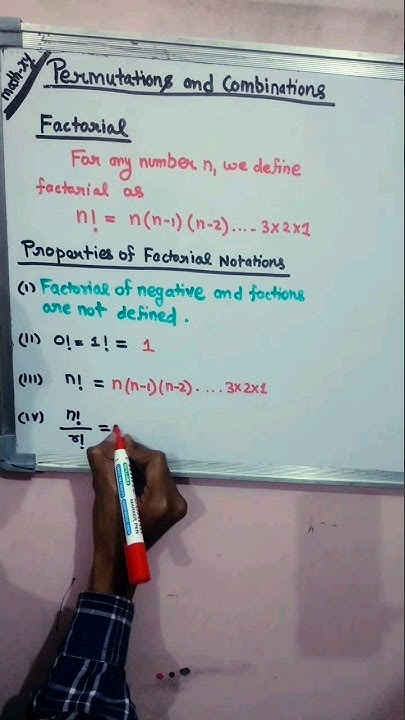 math-xy
Permutations and Combinations
Factorial
For any number n, we define
factorial as
n! = n(n-1) (n-2) .... 3×2×1
Properties of Factorial Notations
(I) Factorial of negative and factions
are not defined.
(II) 0! = 1! = 1
(III) n! = n(n-1)(n-2). ... 3×2×1
(IV) n!/r! =